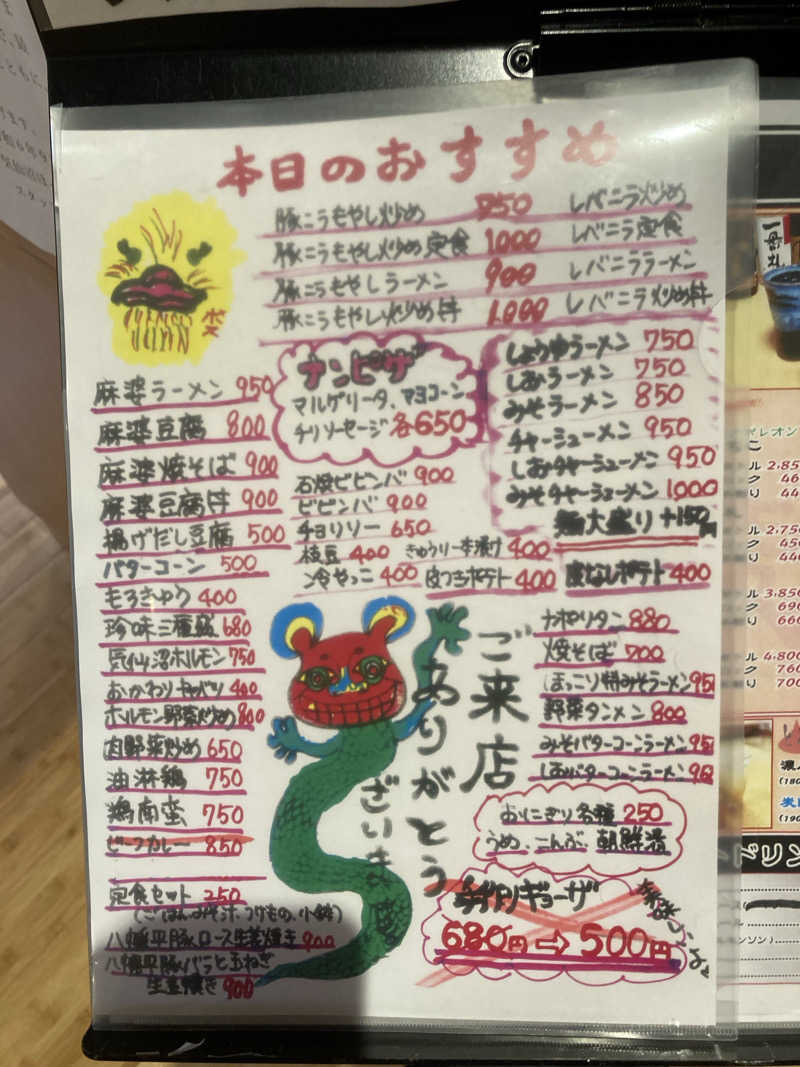 本日のおすすめ
豚こうもやし炒め 750 レバニラ炒め
豚こうもやし炒め定食 1000 レバニラ定食
豚こうもやしラーメン 900 レバニララーメン
豚こうもやし炒め丼 1.000 レバニラ炒め丼
ナンピザ
マルゲリータ、マヨコーン
チリソーセージ 各650
しょうゆラーメン 750
しおラーメン 750
みそラーメン 850
チャーシューメン 950
しおチャーシューメン 950
みそチャーシューメン 1,000
麺大盛り +150円
麻婆ラーメン 950
麻婆豆腐 800
麻婆焼そば 900
麻婆豆腐丼 900
揚げだし豆腐 500
バターコーン 500
もろきゅう 400
珍味三種盛 680
気仙沼ホルモン 750
おかわりキャベツ 400
ホルモン野菜炒め 800
肉野菜炒め 650
油淋鶏 750
鶏南蛮 750
ビーフカレー 850
定食セット 250
(ごはん、みそ汁、つけもの、小鉢)
八幡平豚ロース生姜焼き 900
八幡平豚バラと玉ねぎ
生姜焼き 900
石焼ビビンバ 900
ビビンバ 900
チョリソー 650
枝豆 400 きゅうり一本漬け 400
冷やっこ 400 皮つきポテト 400 皮なしポテト 400
ナポリタン 880
焼そば 700
ほっこり特みそラーメン 950
野菜タンメン 800
みそバターコーンラーメン 950
しおバターコーンラーメン 950
おにぎり各種 250
うめ、こんぶ、朝鮮漬
手作りギョーザ
680円⇨500円
ご来店
ありがとう
ございます